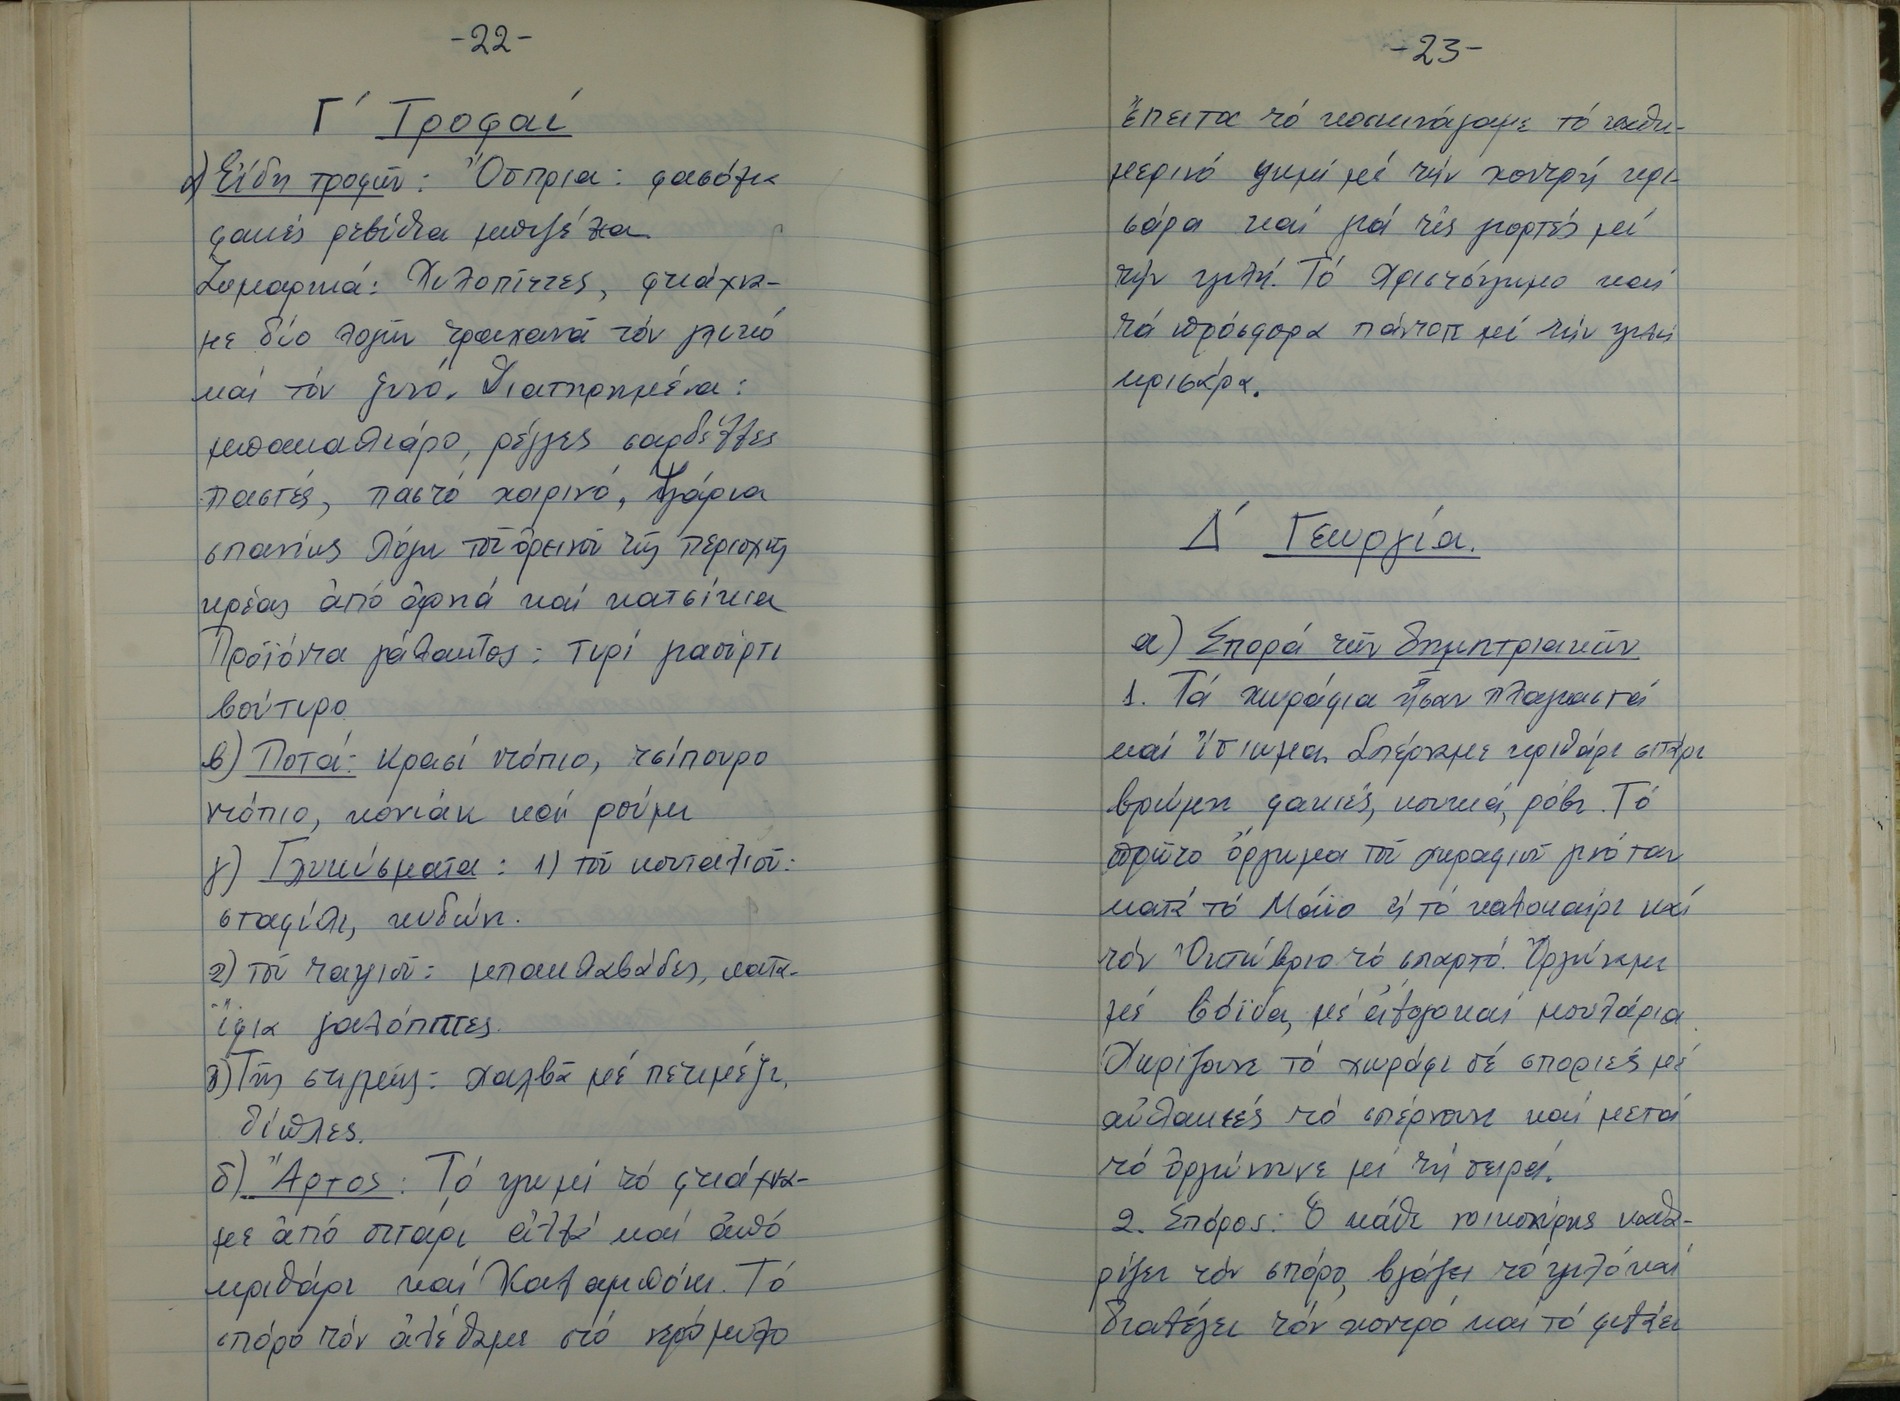 -22-
Γ΄ Τροφαί
α) Εἴδη τροφῶν: Ὄσπρια: φασόλια
φακές ρεβύθια μπιζέλια
Ζυμαρικά: Χυλοπίττες, φτιάχνα-
με δύο λογιῶν τραχανᾶ τόν γλυκό
καί τόν ξυνό. Διατηρημένα:
μπακαλιάρο, ρέγγες σαρδέλλες
παστές, παστό χοιρινό, Ψάρια
σπανίως λόγω τοῦ ὀρεινοῦ τῆς περιοχῆς
κρέας ἀπό ἀρνιά καί κατσίκια
Προϊόντα γάλακτος: τυρί γιαούρτι
βούτυρο
β) Ποτά: κρασί ντόπιο, τσίπουρο
ντόπιο, κονιάκ καί ρούμι
γ) Γλυκύσματα: 1) τοῦ κουταλιοῦ:
σταφύλι, κυδώνι.
2) τοῦ ταψιοῦ: μπακλαβάδες, κατα-
ΐφια γαλόπιττες.
3) Τῆς στιγμῆς: χαλβᾶ μέ πετιμέζι,
δίπλες.
δ) Ἄρτος: Τό ψωμί τό φτιάχνα-
με ἀπό σιτάρι ἀλλά καί ἀπό
κριθάρι καί Καλαμπόκι. Τό
σπόρο τόν ἀλέθαμε στό νερόμυλο
-23-
ἔπειτα τό κοσκινάγαμε τό καθη-
μερινό ψωμί μέ τήν χοντρή κρι-
σάρα καί γιά τίς γιορτές μέ
τήν ψιλή. Τό Χριστόψωμο καί
τά πρόσφορα πάντοτε μέ τήν ψιλή
κρισάρα.
Δ΄ Γεωργία.
α) Σπορά τῶν δημητριακῶν
1. Τά χωράφια ἦσαν πλαγιαστά
καί ἴσιωμα. Σπέρναμε κριθάρι σιτάρι
βρώμη φακιές, κουκιά, ρόβι. Τό
πρῶτο ὄργωμα τοῦ χωραφιοῦ γινόταν
κατά τό Μάϊο ἤ τό καλοκαίρι καί
τόν Ὀκτώβριο τό σπαρτό. Ὀργώναμε
μέ βόϊδα, μέ ἄλογο καί μουλάρια.
Χωρίζουνε τό χωράφι σέ σποριές μέ
αὐλακιές τό σπέρνουνε καί μετά
τό ὀργώνουνε μέ τή σειρά.
2. Σπόρος: Ὁ κάθε νοικοκύρης καθα-
ρίζει τόν σπόρο, βγάζει τό ψιλό καί
διαλέγει τόν χοντρό καί τό φυλάει